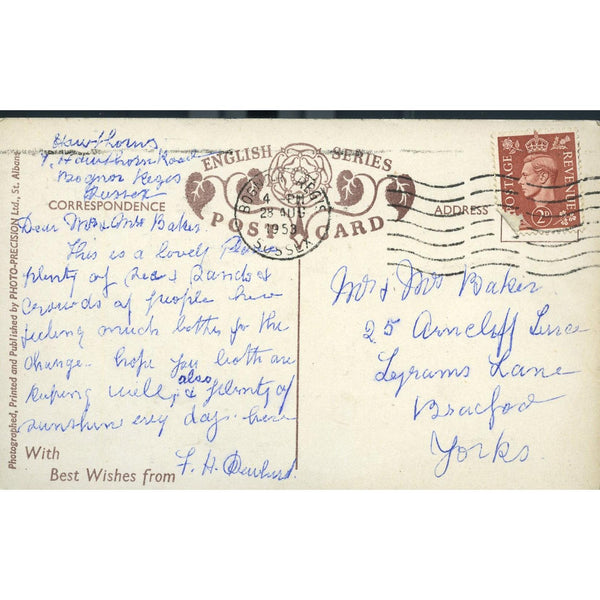 Hawthorns
7, Hawthorn Road
Bognor Regis
Sussex
ENGLISH SERIES
POST CARD
CORRESPONDENCE
ADDRESS
BOGNOR REGIS
4 PM
28 AUG
1953
SUSSEX
POSTAGE
REVENUE
2D
Dear Mr & Mrs Baker.
This is a lovely Place
plenty of Sea & Sands &
Crowds of people here
feeling much better for the
Change. hope you both are
keeping well, also
& plenty of
sunshine every day here
With
Best Wishes from
F. H.
Mr & Mrs Baker
25 Arncliff
Legrams Lane
Yorks
Photographed, Printed and Published by PHOTO-PRECISION Ltd., St. Albans